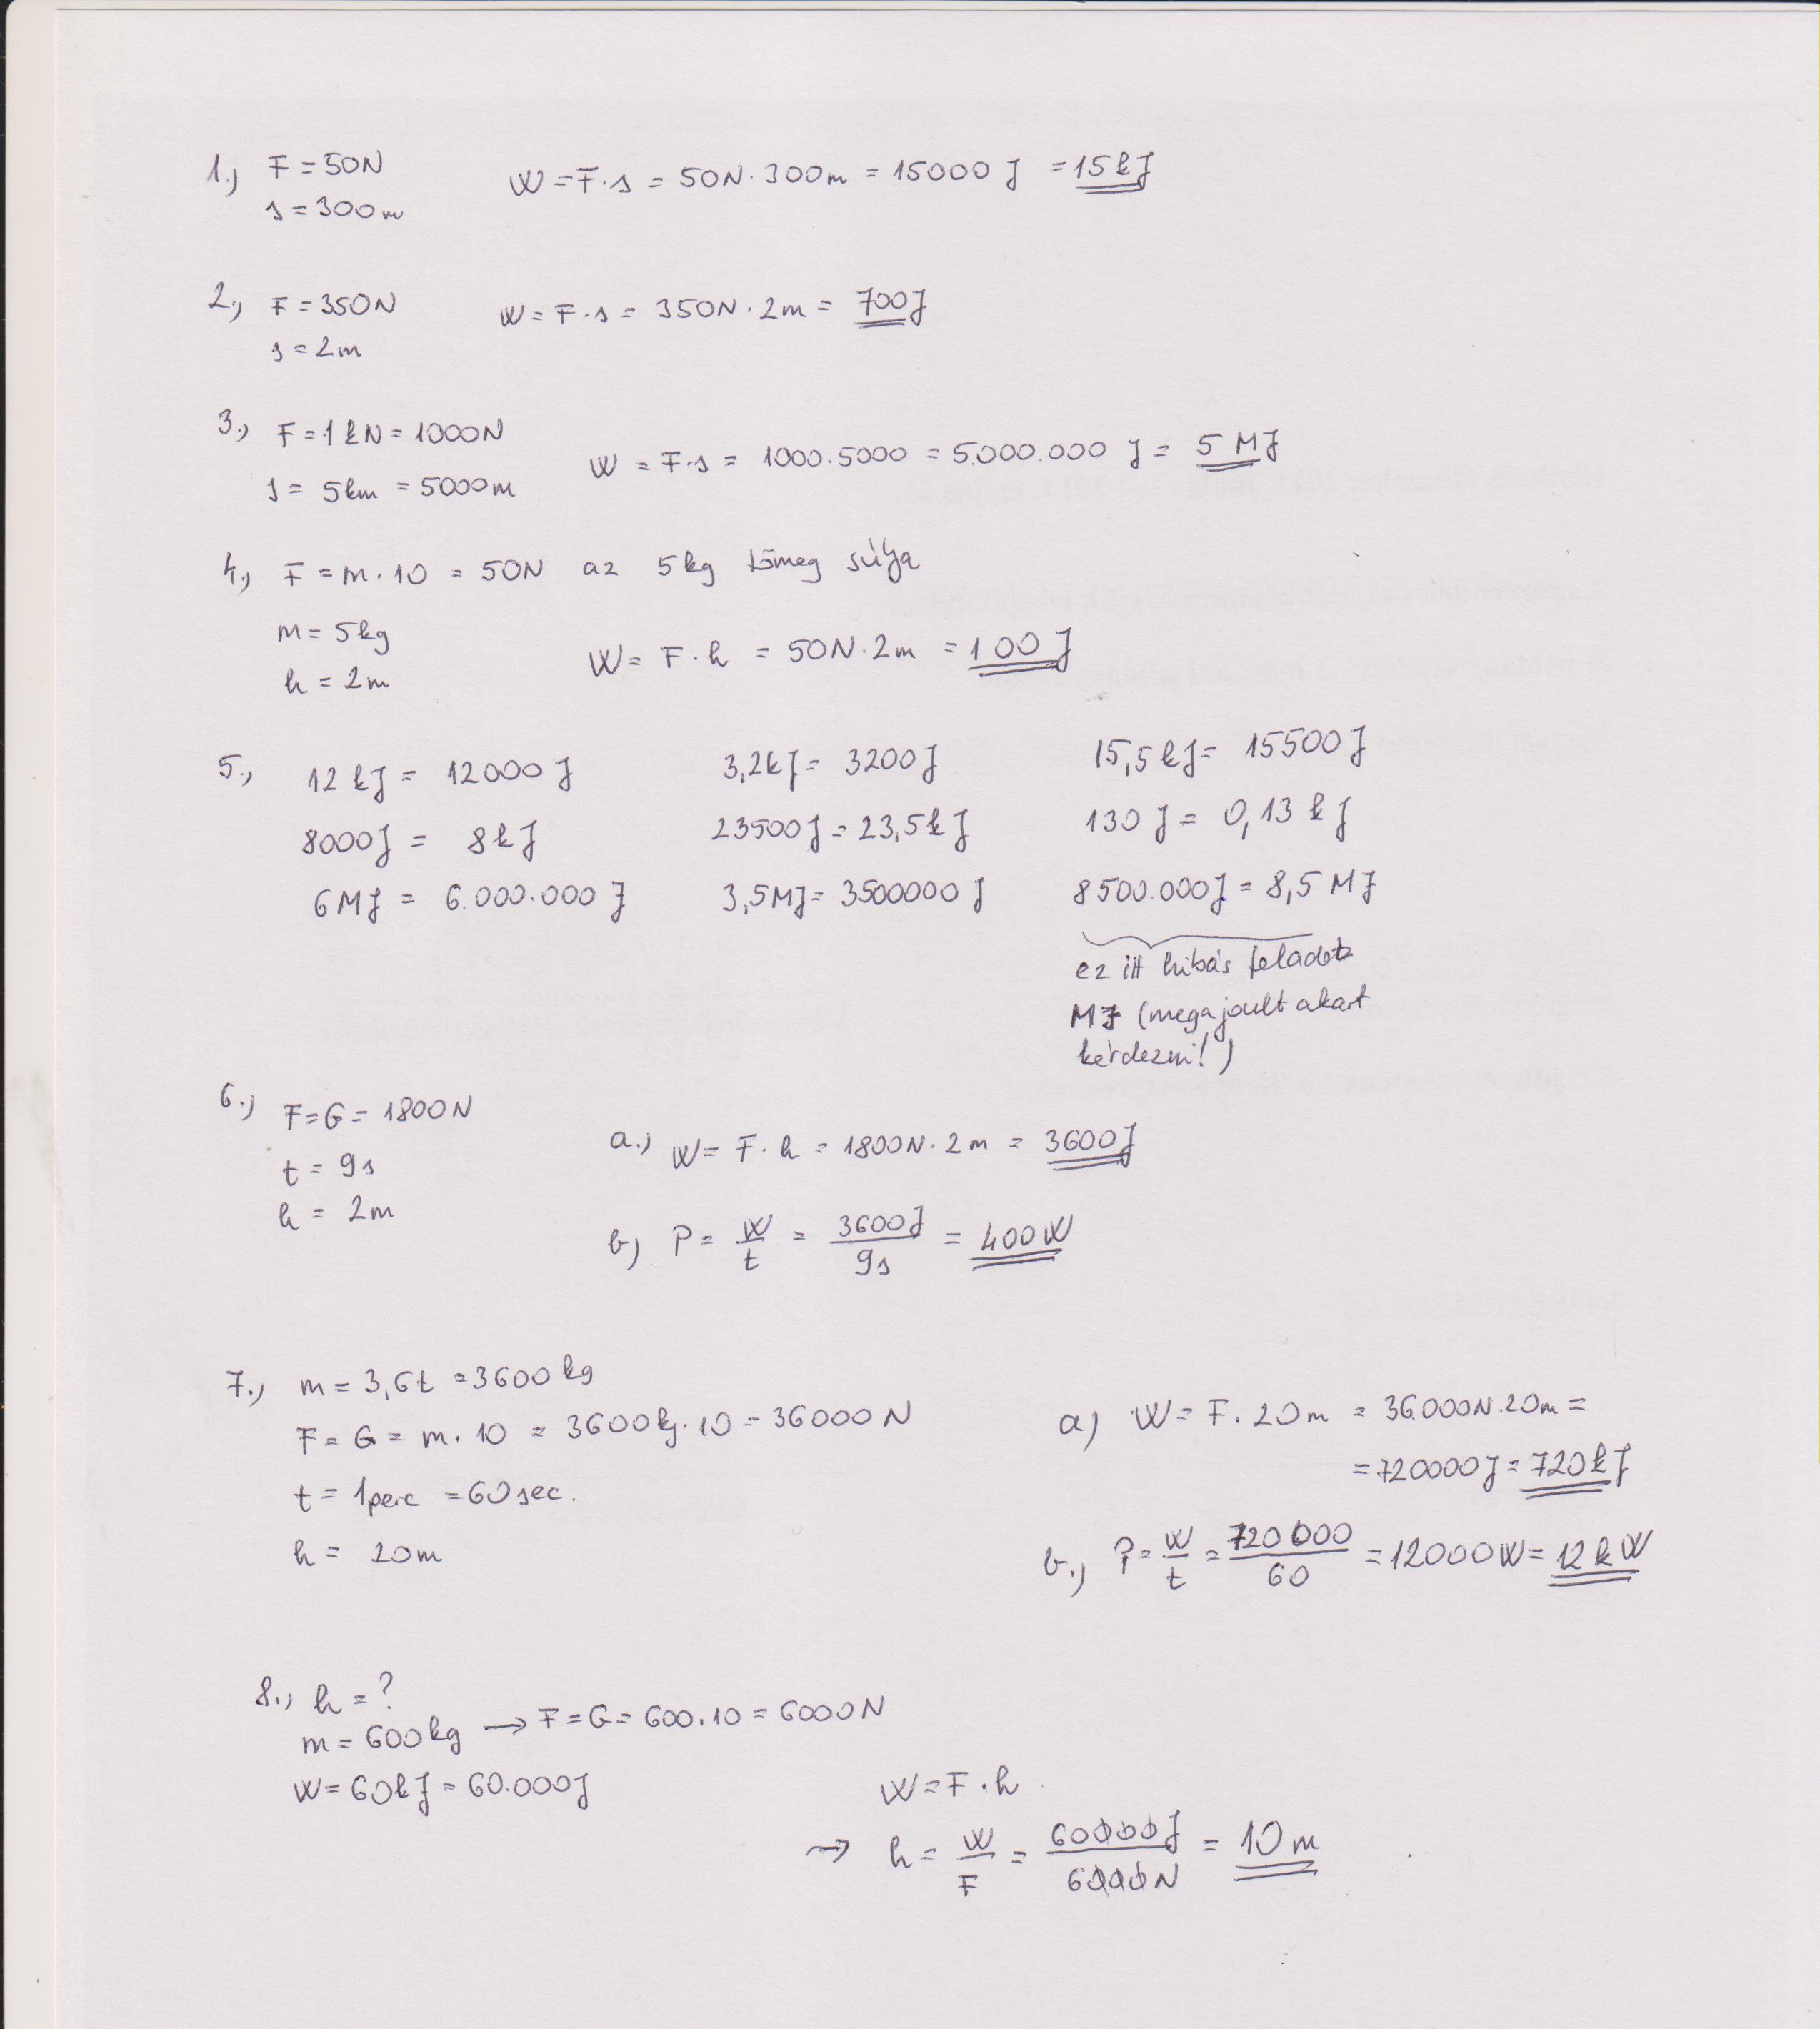 1.) F = 50N
s = 300m
W = F·s = 50N·300m = 15000 J = 15kJ
2.) F = 350N
s = 2m
W = F·s = 350N·2m = 700J
3.) F = 1kN = 1000N
s = 5km = 5000m
W = F·s = 1000·5000 = 5.000.000 J = 5 MJ
4.) F = m·10 = 50N az 5kg tömeg súlya
m = 5kg
h = 2m
W = F·h = 50N·2m = 100J
5.) 12 kJ = 12000 J 3,2kJ = 3200J 15,5kJ = 15500J
8000J = 8kJ 23500J = 23,5kJ 130 J = 0,13 kJ
6MJ = 6.000.000 J 3,5MJ = 3500000 J 8500.000J = 8,5 MJ
ez itt hibás feladat
MJ (megajoult akart
kérdezni!)
6.) F = G = 1800N
t = 9s
h = 2m
a.) W = F·h = 1800N·2m = 3600J
b) P = W/t = 3600J/9s = 400W
7.) m = 3,6t = 3600kg
F = G = m·10 = 3600kg·10 = 36000N
t = 1perc = 60sec.
h = 20m
a) W = F·20m = 36.000N·20m =
= 720000J = 720kJ
b.) P = W/t = 720000/60 = 12000W = 12kW
8.) h = ?
m = 600kg → F = G = 600·10 = 6000N
W = 60kJ = 60.000J
W = F·h
→ h = W/F = 60000J/6000N = 10m